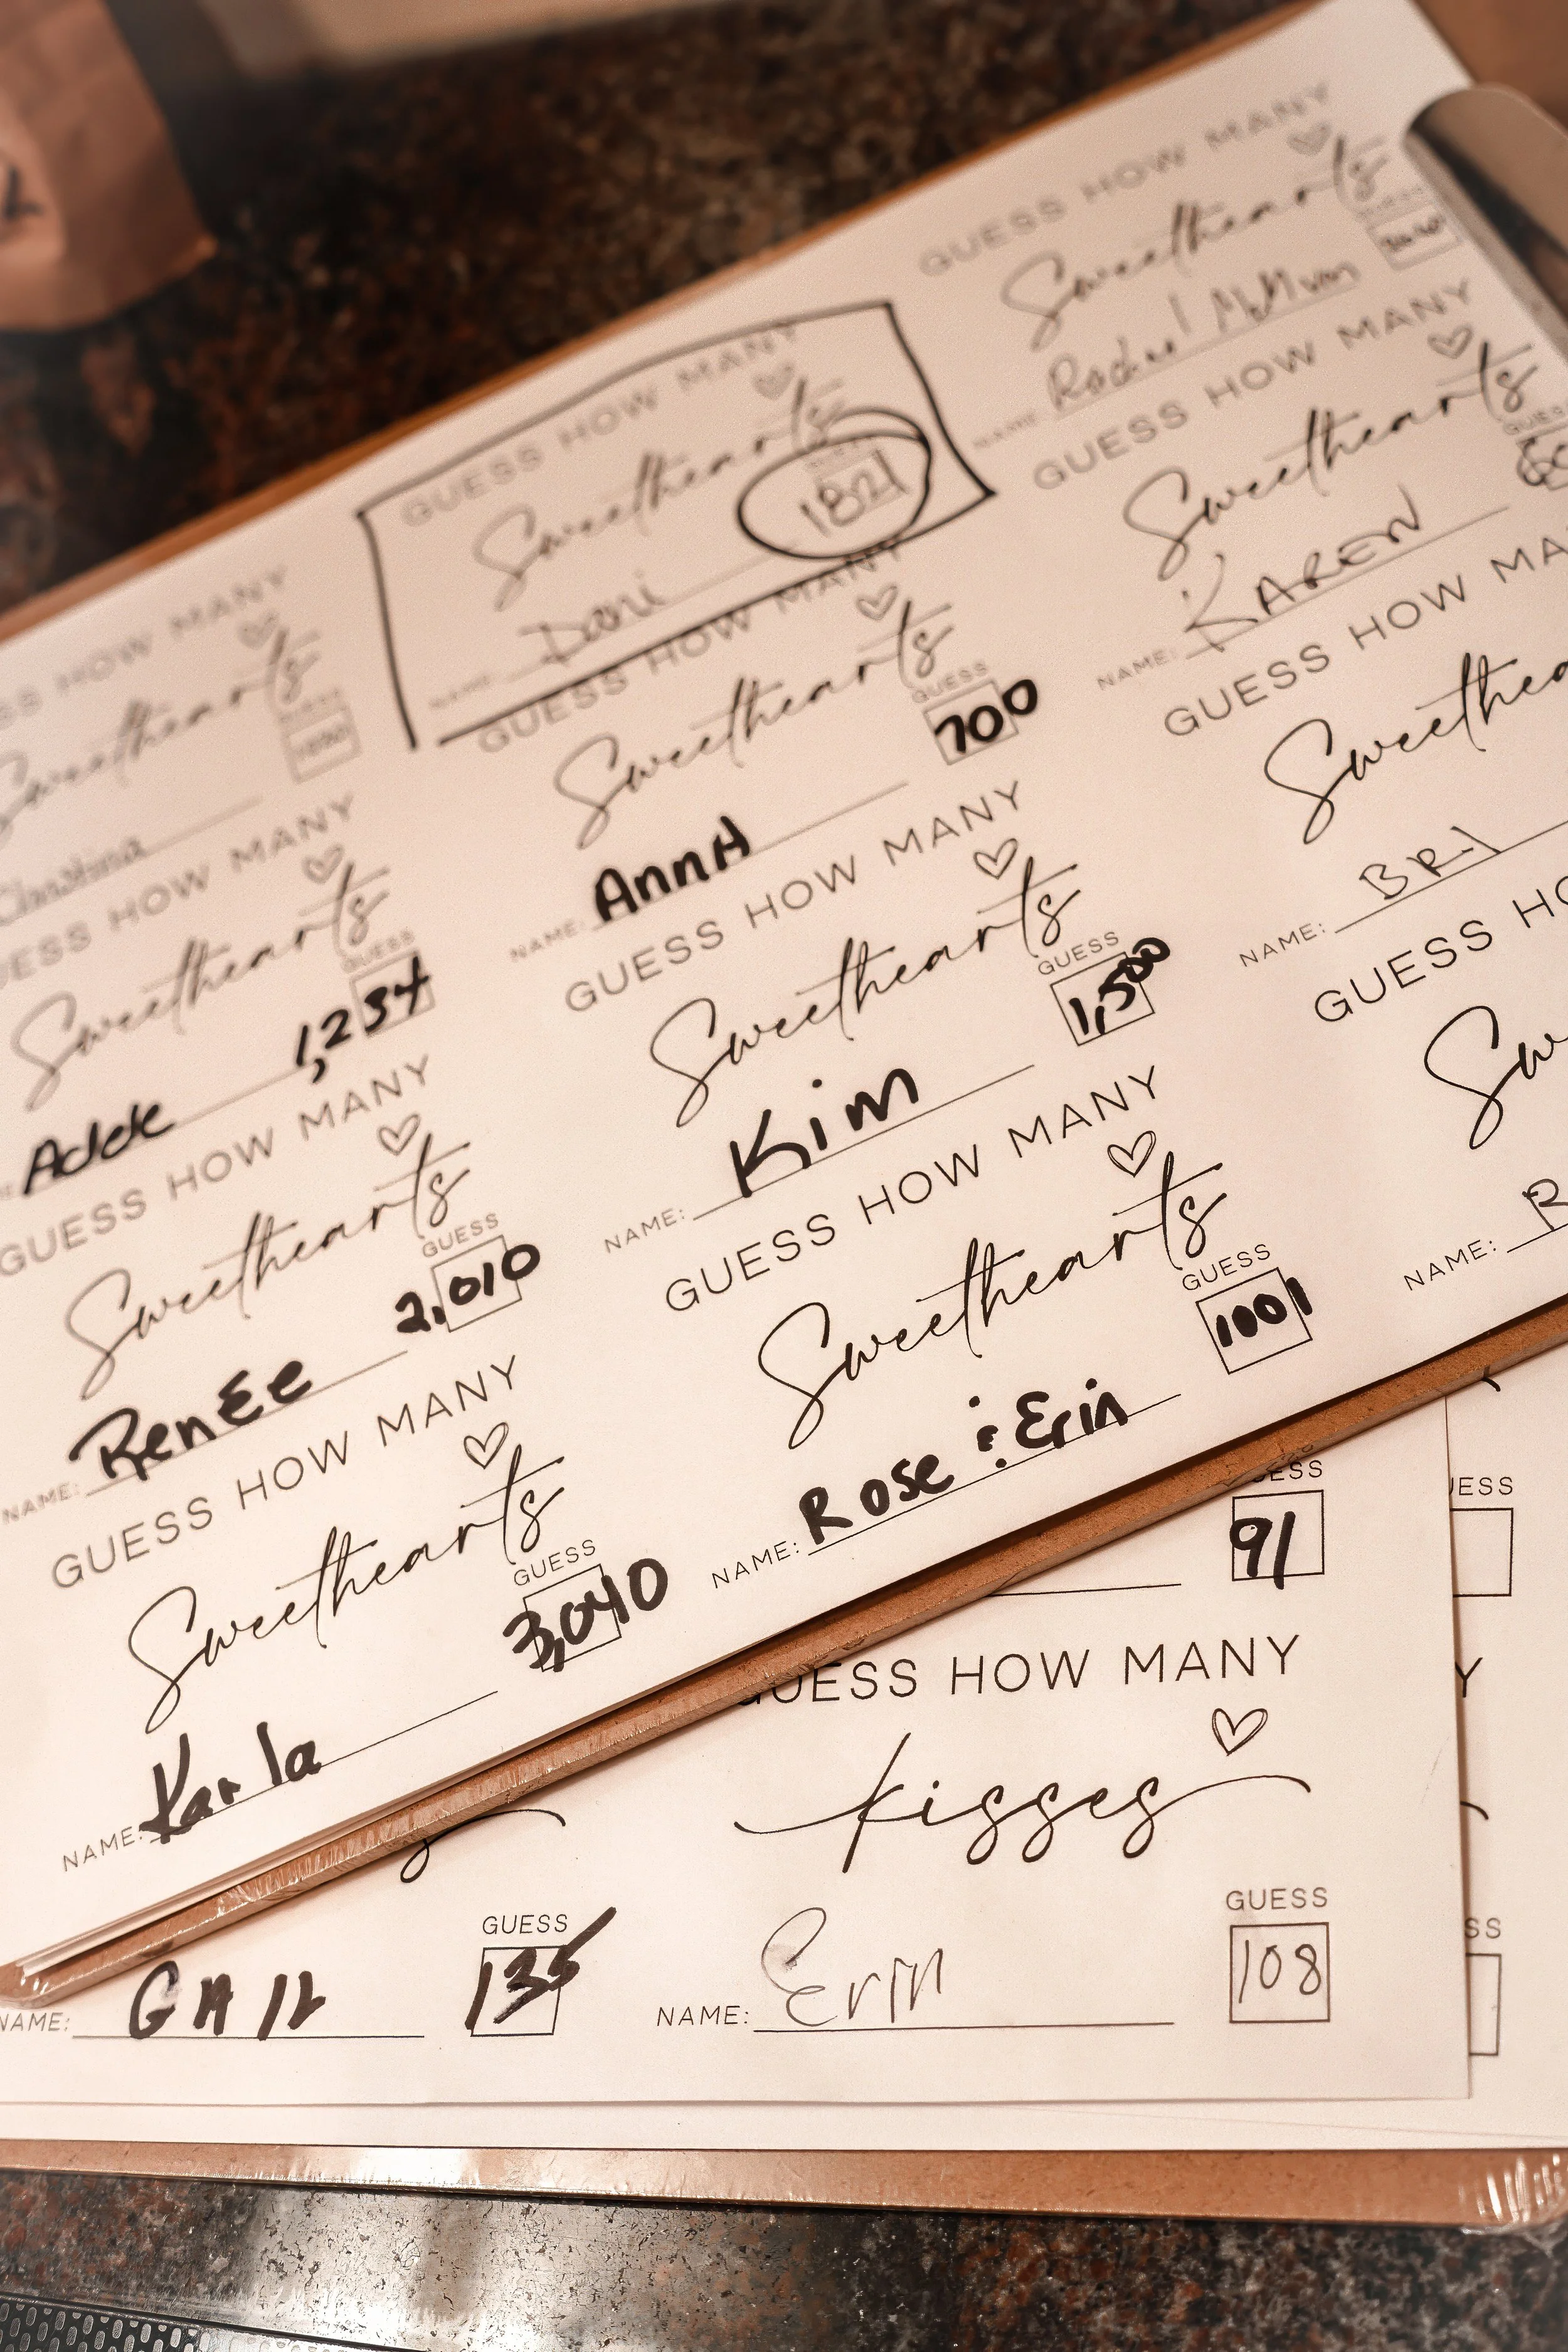 GUESS HOW MANY
Sweethearts
GUESS
NAME: Rachel
GUESS HOW MANY
Sweethearts
GUESS
NAME: KAREN
GUESS HOW MA
Sweethea
NAME: BRI
GUESS HO
Sw
NAME: R
GUESS HOW MANY
Sweethearts
1821
NAME: Dani
GUESS HOW MANY
Sweethearts
GUESS
700
NAME: AnnA
GUESS HOW MANY
Sweethearts
GUESS
1,500
NAME: Kim
GUESS HOW MANY
Sweethearts
GUESS
1001
NAME: Rose & Erin
SS HOW MANY
Sweethearts
GUESS
Christina
UESS HOW MANY
Sweethearts
GUESS
1,234
Adde
GUESS HOW MANY
Sweethearts
GUESS
2,010
NAME: RenEe
GUESS HOW MANY
Sweethearts
GUESS
3,040
NAME: Karla
UESS
91
UESS
GUESS HOW MANY
Y
kisses
GUESS
135
NAME: GAIL
GUESS
108
NAME: Erin
SS